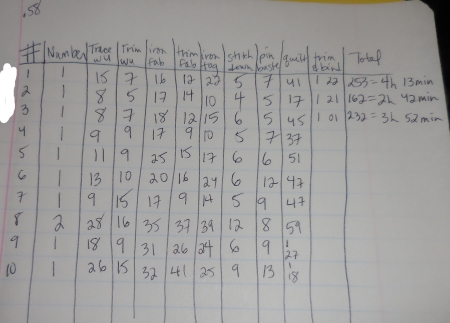 .58
# Number Trace wu Trim wu iron fab trim fab iron tog stitch down pin baste quilt trim + bind Total
1 1 15 7 16 12 22 5 7 41 1 22 253 = 4h 13min
2 1 8 5 17 14 10 4 5 17 1 21 162 = 2h 42min
3 1 8 7 18 12 15 6 5 45 1 01 232 = 3h 52min
4 1 9 9 17 9 10 5 7 37
5 1 11 9 25 15 17 6 6 51
6 1 13 10 20 16 24 6 12 47
7 1 9 15 17 9 14 5 9 47
8 2 28 16 35 37 39 12 8 59
9 1 18 9 31 26 24 6 9 1 27
10 1 26 15 32 41 25 9 13 1 18